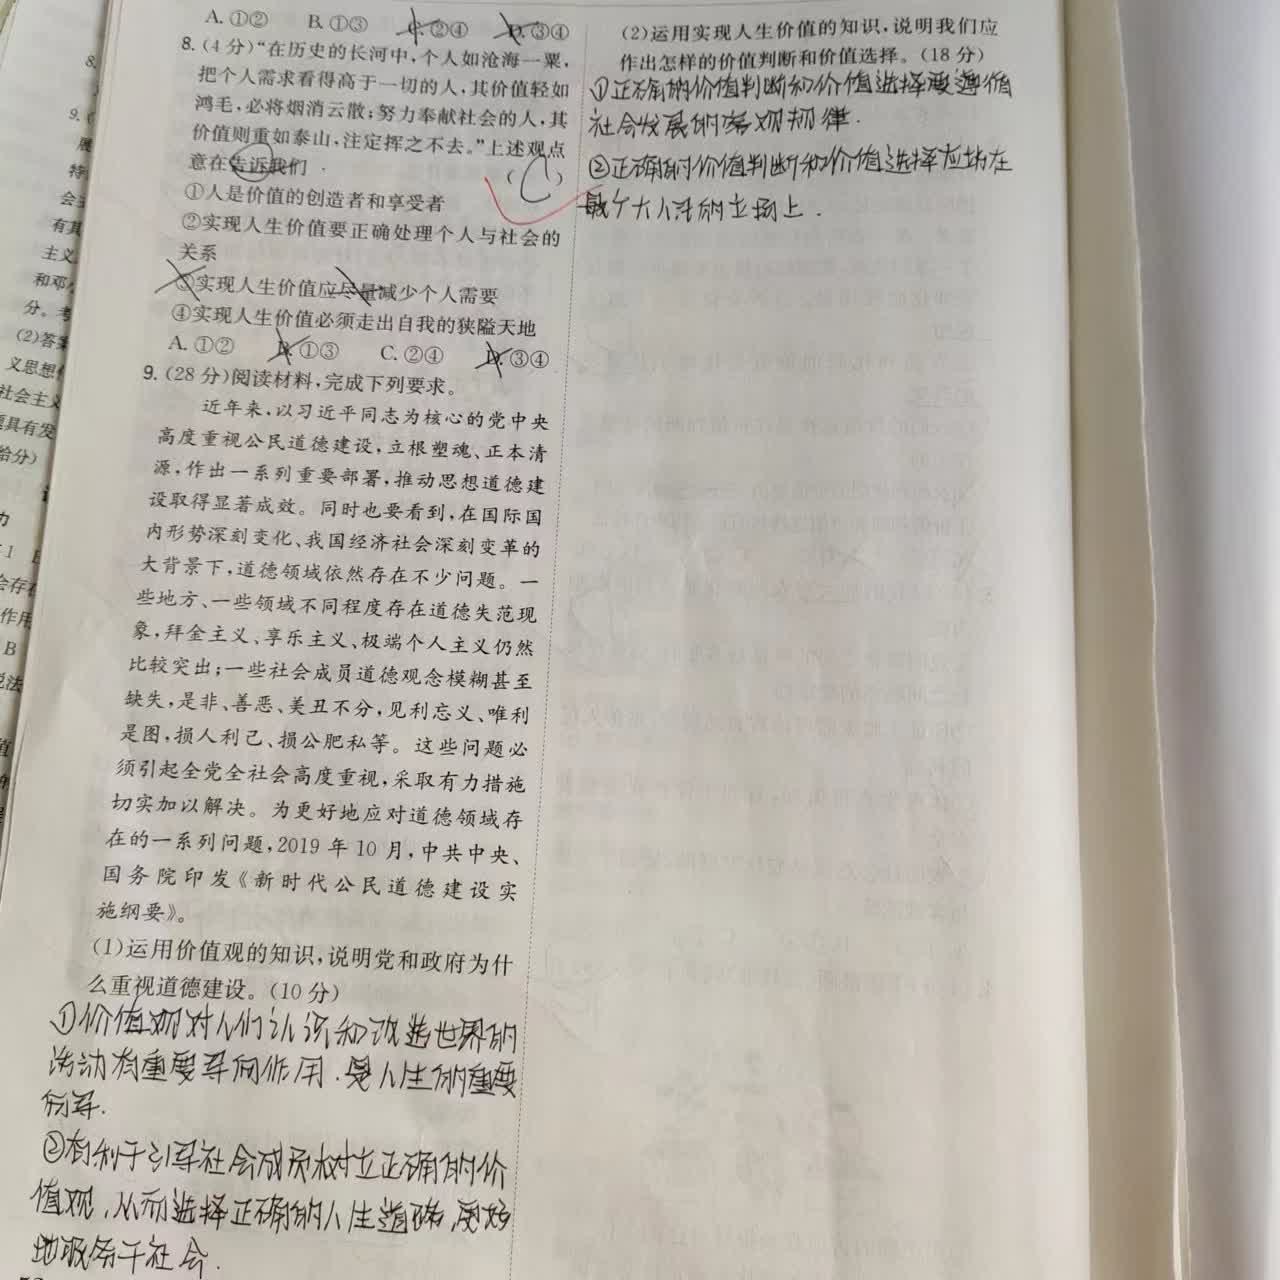 A.①② B.①③ C.②④ D.③④
8.(4分)“在历史的长河中,个人如沧海一粟,
把个人需求看得高于一切的人,其价值轻如
鸿毛,必将烟消云散;努力奉献社会的人,其
价值则重如泰山,注定挥之不去。”上述观点
意在告诉我们 (C)
①人是价值的创造者和享受者
②实现人生价值要正确处理个人与社会的
关系
③实现人生价值应尽量减少个人需要
④实现人生价值必须走出自我的狭隘天地
A.①② B.①③ C.②④ D.③④
9.(28分)阅读材料,完成下列要求。
近年来,以习近平同志为核心的党中央
高度重视公民道德建设,立根塑魂、正本清
源,作出一系列重要部署,推动思想道德建
设取得显著成效。同时也要看到,在国际国
内形势深刻变化、我国经济社会深刻变革的
大背景下,道德领域依然存在不少问题。一
些地方、一些领域不同程度存在道德失范现
象,拜金主义、享乐主义、极端个人主义仍然
比较突出;一些社会成员道德观念模糊甚至
缺失,是非、善恶、美丑不分,见利忘义、唯利
是图,损人利己、损公肥私等。这些问题必
须引起全党全社会高度重视,采取有力措施
切实加以解决。为更好地应对道德领域存
在的一系列问题,2019年10月,中共中央、
国务院印发《新时代公民道德建设实
施纲要》。
(1)运用价值观的知识,说明党和政府为什
么重视道德建设。(10分)
①价值观对人们认识和改造世界的
活动有重要导向作用.是人生的重要
向导.
②有利于引导社会成员树立正确的价
值观,从而选择正确的人生道路,更好
地服务于社会.
(2)运用实现人生价值的知识,说明我们应
作出怎样的价值判断和价值选择。(18分)
①正确的价值判断和价值选择要遵循
社会发展的客观规律.
②正确的价值判断和价值选择应站在
最广大人民的立场上.
8.
9.
展
特
会主
有其
主义
和邓小
分。考
(2)答案
义思想
社会主义
具有发
给分)
力
会存在
作用
B
说法
值